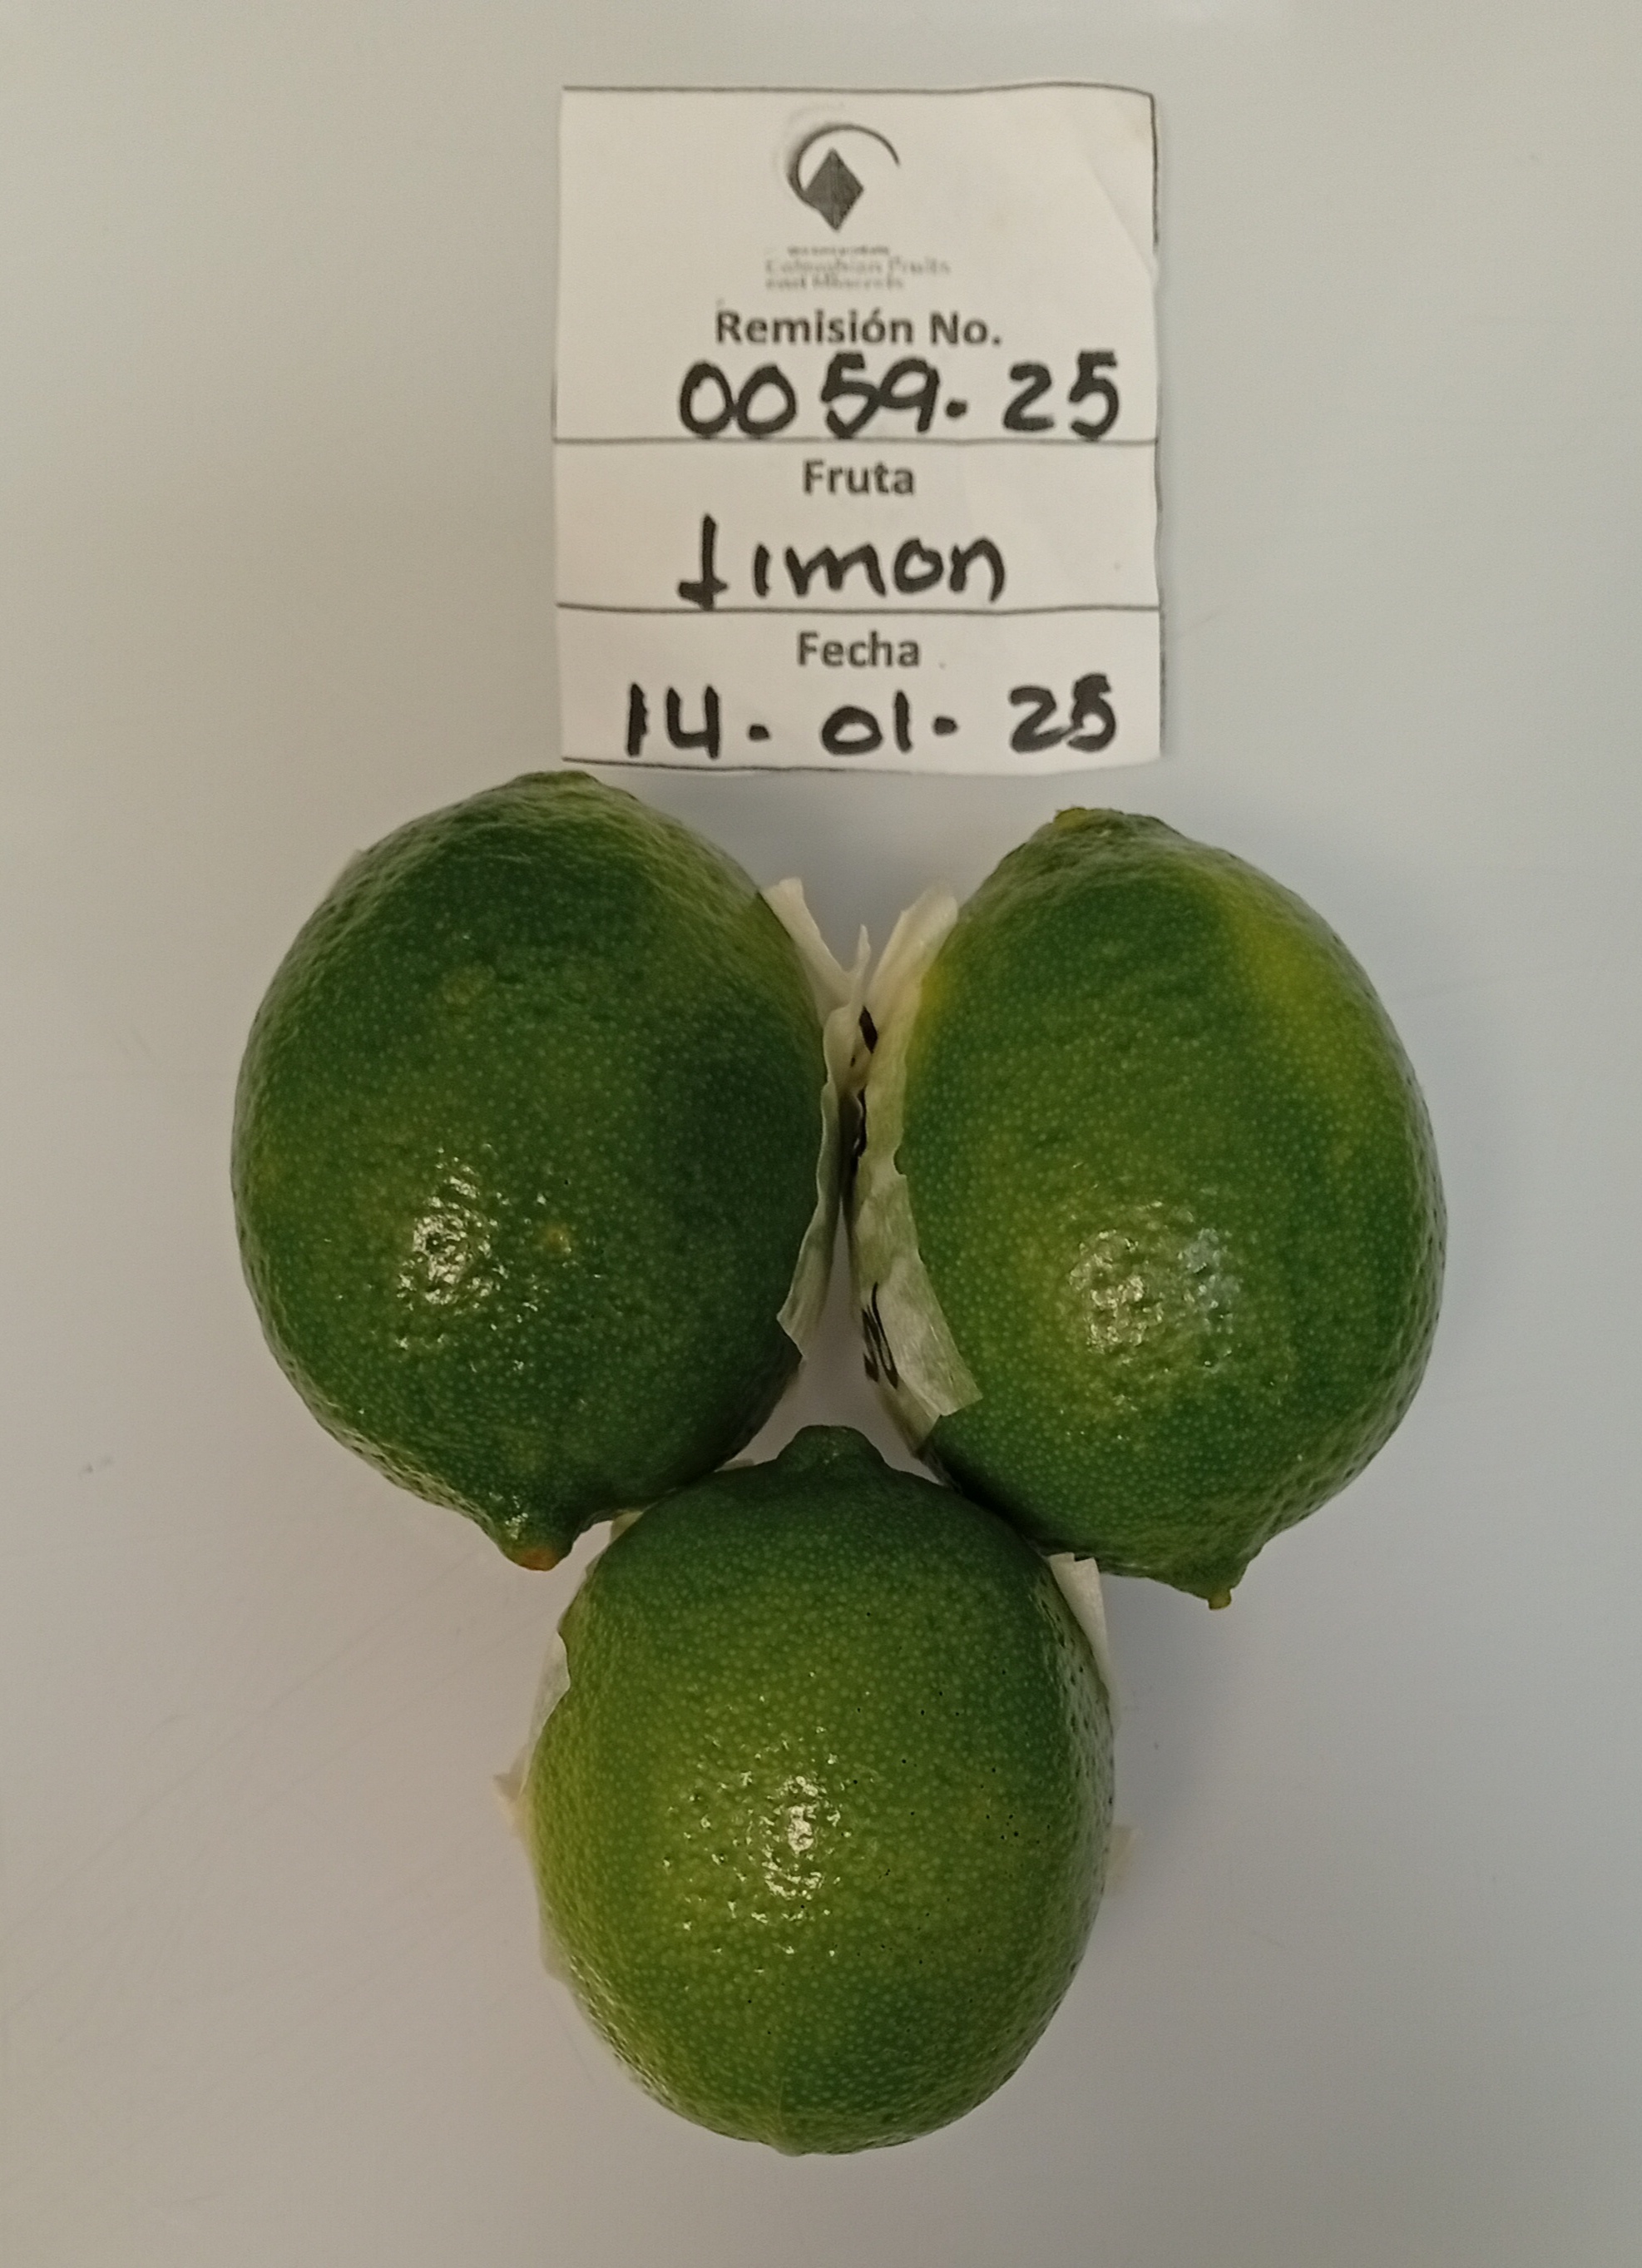 Colombian Fruits
and Minerals
Remisión No.
0059.25
Fruta
Limon
Fecha
14.01.25